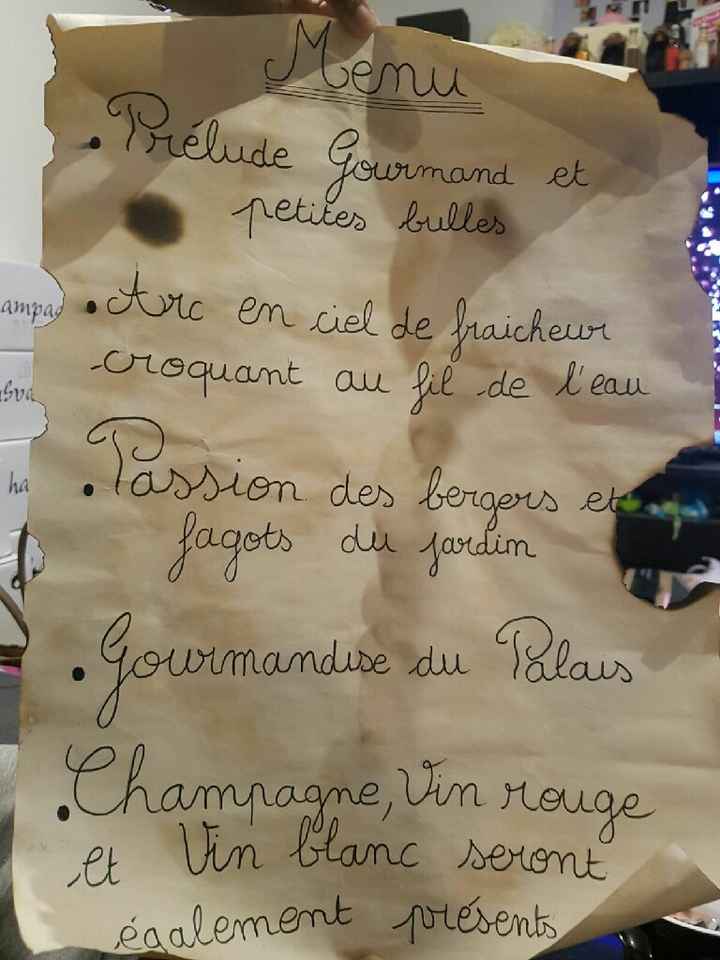 Menu
• Prélude Gourmand et
petites bulles
• Arc en ciel de fraicheur
croquant au fil de l'eau
• Passion des bergers et
fagots du jardin
• Gourmandise du Palais
• Champagne, Vin rouge
et Vin blanc seront
également présents